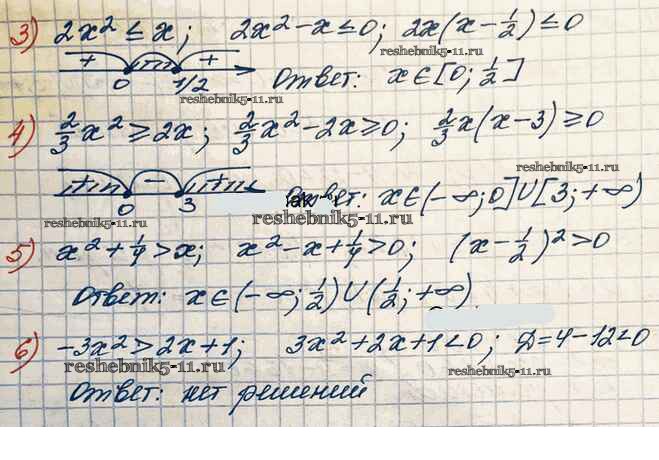 3) 2x² ≤ x; 2x² - x ≤ 0; 2x(x - 1/2) ≤ 0
reshebnik5-11.ru
+ - +
0 1/2 Ответ: x ∈ [0; 1/2]
reshebnik5-11.ru
4) 2/3 x² ≥ 2x; 2/3 x² - 2x ≥ 0; 2/3 x(x - 3) ≥ 0
reshebnik5-11.ru
+ - +
0 3 Ответ: x ∈ (-∞; 0] ∪ [3; +∞)
reshebnik5-11.ru
5) x² + 1/4 > x; x² - x + 1/4 > 0; (x - 1/2)² > 0
Ответ: x ∈ (-∞; 1/2) ∪ (1/2; +∞)
6) -3x² > 2x + 1; 3x² + 2x + 1 < 0; Д = 4 - 12 < 0
reshebnik5-11.ru reshebnik5-11.ru
Ответ: нет решений